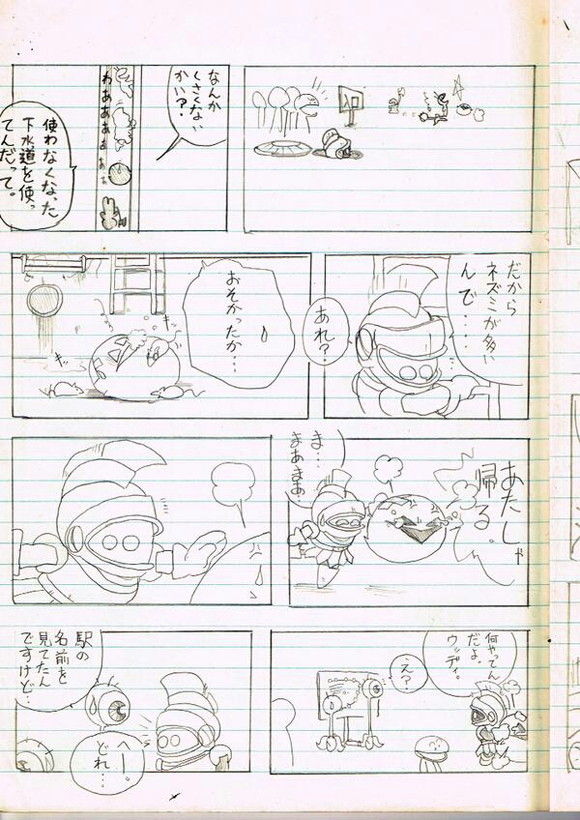 なんか
くさくない
かい？
わあああぁぁぁ
使わなくなった
下水道を使っ
てんだって。
だから
ネズミが多い
んで・・・・
あれ？
おそかったか・・・
キッ
キッ
あたしゃ
帰る。
ま・・・
まあまあ・・
何やってん
だよ。
ウッディ。
え？
駅の
名前を
見てたん
ですけど・・
へー。
どれ・・・